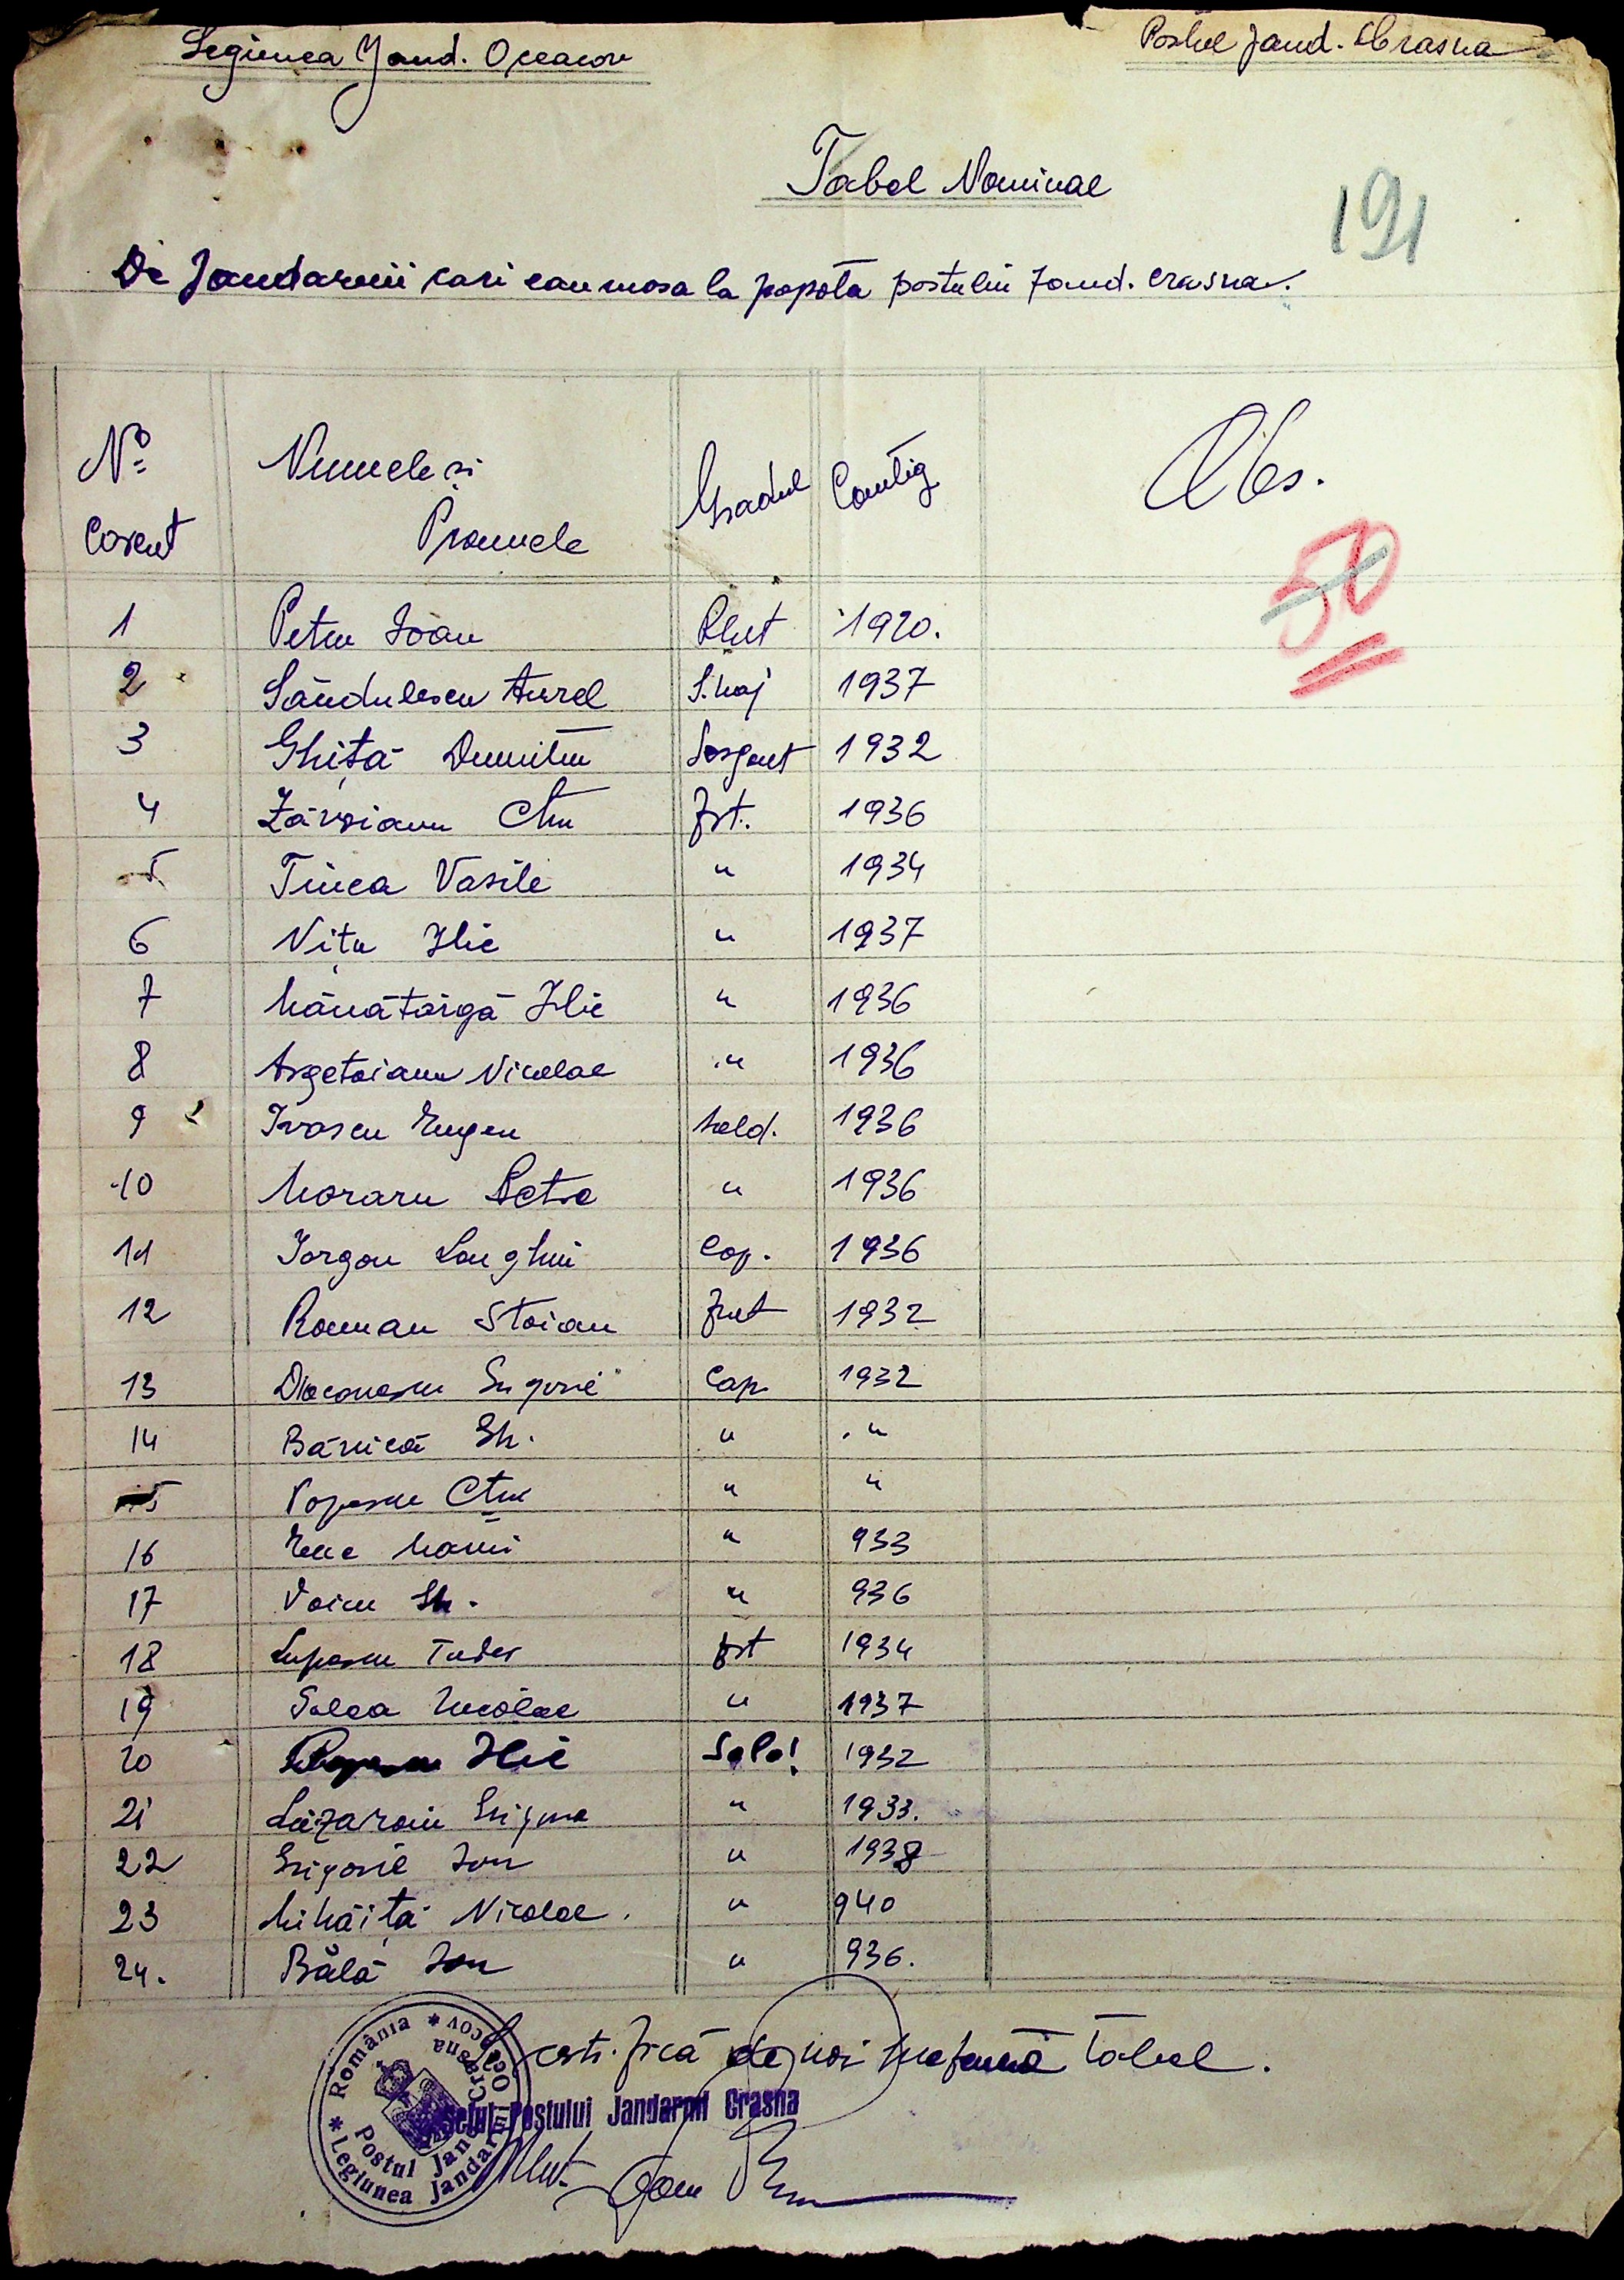 Legiunea Jand. Oceacov
Postul Jand. Crasna
Tabel Nominal
191
De Jandarmii cari iau masa la popota postului Jand. Crasna.
No Numele și Gradul Contig Obs.
Corent Pronumele
50
1 Petru Ioan Plut 1920.
2 Săndulescu Aurel S.maj 1937
3 Ghiță Dumitru Sergent 1932
4 Zăvoianu Ctin frt. 1936
5 Tinca Vasile " 1934
6 Nițu Ilie " 1937
7 Mânătărgă Ilie " 1936
8 Argetoianu Nicolae " 1936
9 Ivascu Eugen Sold. 1936
10 Moraru Petre " 1936
11 Iorgou Cap. 1936
12 Roman Stoian frut 1932
13 Diaconescu Grigorie Cap. 1932
14 Bărnică Gh. " "
15 Popescu Ctin " "
16 Ene Marin " 933
17 Voicu Gh. " 936
18 Lupescu Tudor frt 1934
19 Salea Nicolae " 1937
20 Ilie Sold 1932
21 Lăzăroiu " 1933.
22 Grigorie Ion " 1938
23 Mihăiță Nicolae. " 940
24. Bălă Ion " 936.
Certifică de noi prezentul tabel.
* România * Legiunea Jandarmi Oceacov
Postul Jand. Crasna
Șeful Postului Jandarmi Crasna
Plut.